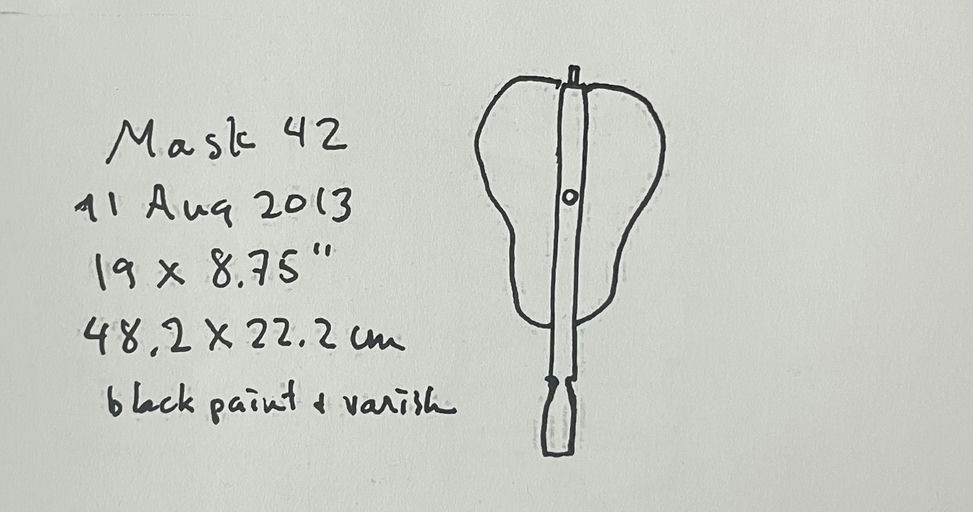 Mask 42
11 Aug 2013
19 x 8.75"
48.2 x 22.2 cm
black paint + varish